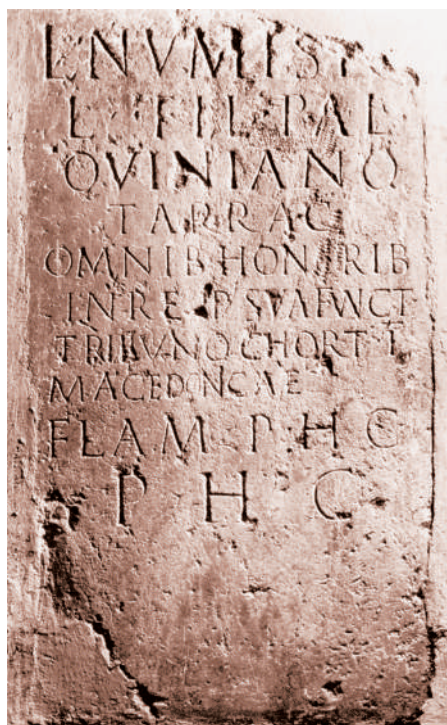 L NVMISI
L FIL PAL
OVINIANO
TARRAC
OMNIB HONORIB
IN RE P SVA FVNCT
TRIBVNO CHORT I
MACEDONCAE
FLAM P H C
P H C